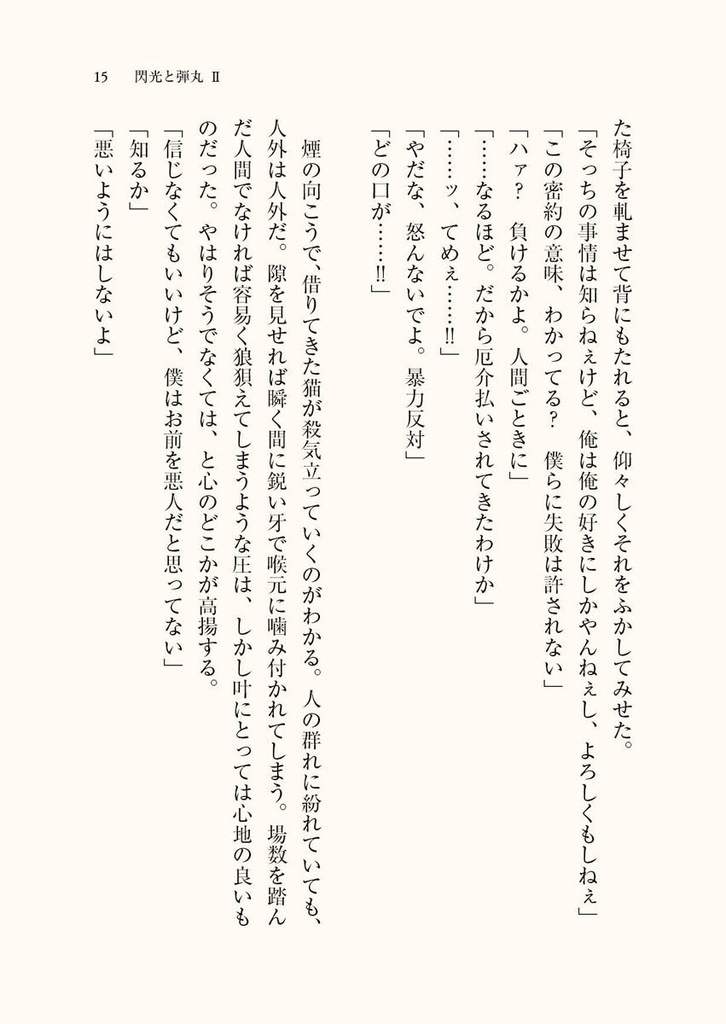 15 閃光と弾丸 Ⅱ
た椅子を軋ませて背にもたれると、仰々しくそれをふかしてみせた。
「そっちの事情は知らねぇけど、俺は俺の好きにしかやんねぇし、よろしくもしねぇ」
「この密約の意味、わかってる？　僕らに失敗は許されない」
「ハァ？　負けるかよ。人間ごときに」
「……なるほど。だから厄介払いされてきたわけか」
「……ッ、てめぇ……‼」
「やだな、怒んないでよ。暴力反対」
「どの口が……‼」
煙の向こうで、借りてきた猫が殺気立っていくのがわかる。人の群れに紛れていても、
人外は人外だ。隙を見せれば瞬く間に鋭い牙で喉元に噛み付かれてしまう。場数を踏ん
だ人間でなければ容易く狼狽えてしまうような圧は、しかし叶にとっては心地の良いも
のだった。やはりそうでなくては、と心のどこかが高揚する。
「信じなくてもいいけど、僕はお前を悪人だと思ってない」
「知るか」
「悪いようにはしないよ」